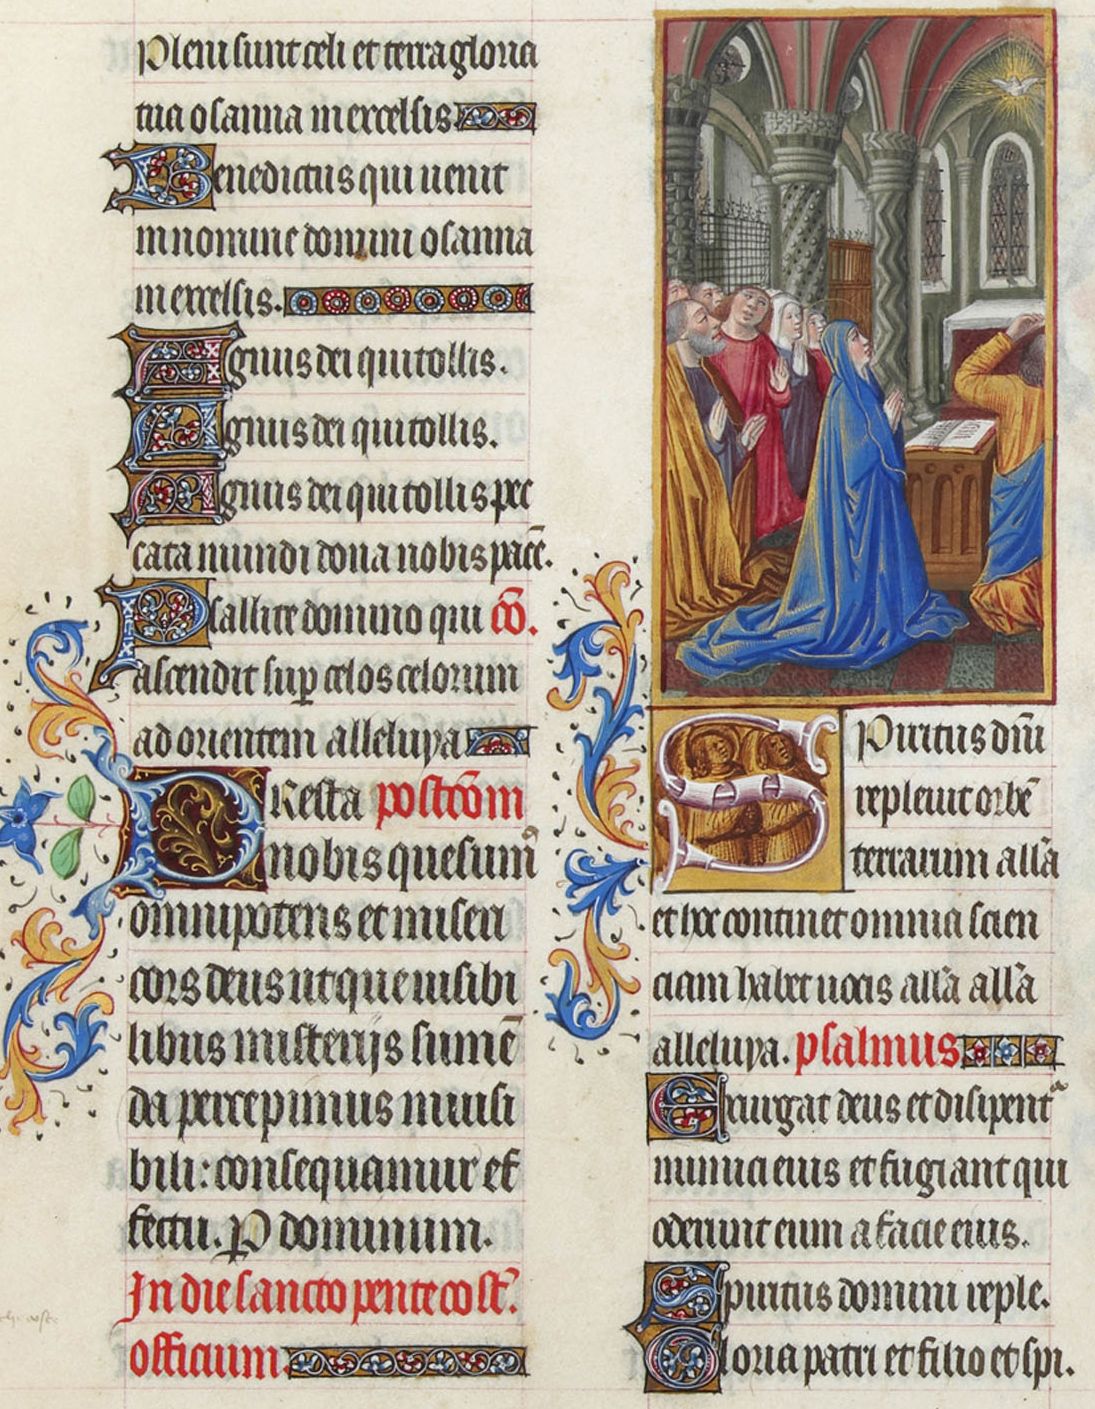 Pleni sunt celi et terra gloria
tua osanna in excelsis
Benedictus qui uenit
in nomine domini osanna
in excelsis.
Agnus dei qui tollis.
Agnus dei qui tollis.
Agnus dei qui tollis pec
cata mundi dona nobis pacē.
Psallite domino qui cō.
ascendit suꝑ celos celorum
ad orientem alleluya
PResta postcōm
nobis quesum᷒
omnipotens et miseri
cors deus ut que uisibi
libus misterijs sumē
da percepimus inuisi
bili: consequamur ef
fectu. P dominum.
In die sancto pentecost᷒.
officium.
Spiritus dn̄i
repleuit orbē
terrarum all̄a
et hoc continet omnia scien
ciam habet uocis all̄a all̄a
alleluya. psalmus
Exurgat deus et disipent᷑
inimici eius et fugiant qui
oderunt eum a facie eius.
Spiritus domini reple.
Gloria patri et filio et spi.